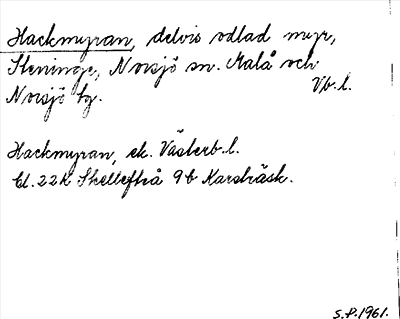 Hackmyran, delvis odlad myr,
Steninge, Norsjö sn. Malå och
Norsjö tg. Vb.l.
Hackmyran, ek. Västerb.l.
Bl. 22K Skellefteå 9b Karsträsk.
S.P. 1961.